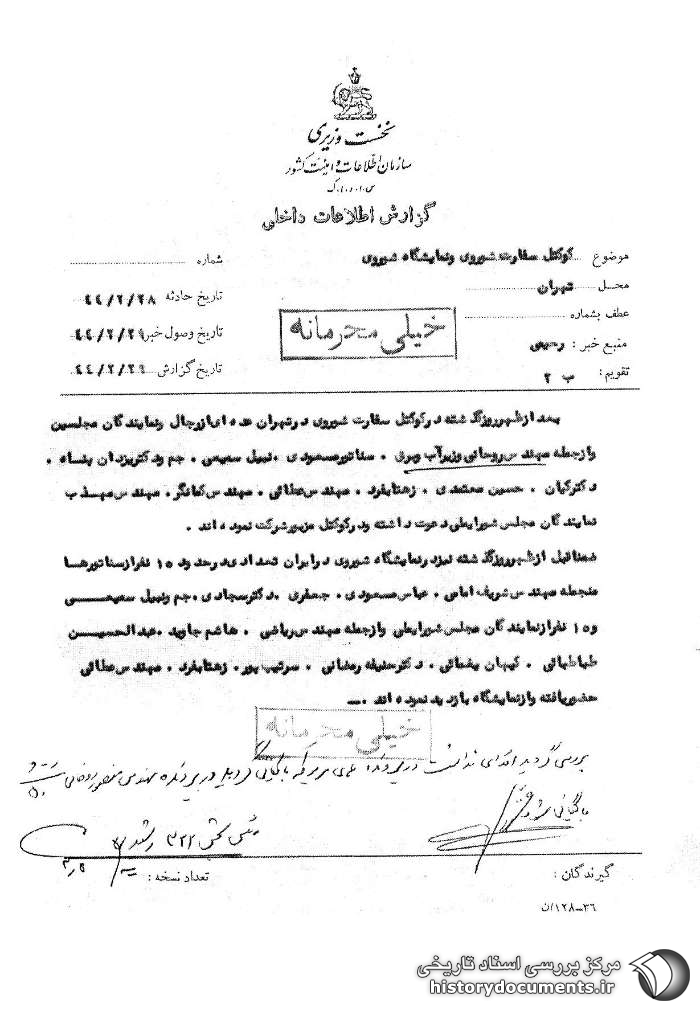 نخست وزیری
سازمان اطلاعات و امنیت کشور
س.ا.و.ا.ک
گزارش اطلاعات داخلی
موضوع کوکتل سفارت شوروی ونمایشگاه شوروی
شماره
محل تهران
تاریخ حادثه ۴۴/۲/۲۸
عطف بشماره
خیلی محرمانه
تاریخ وصول خبر ۴۴/۲/۲۹
منبع خبر : رحیمی
تاریخ گزارش ۴۴/۲/۲۹
تقویم : ب ۲
بعد ازظهرروزگذشته درکوکتل سفارت شوروی درتهران عده ای ازرجال ونمایندگان مجلسین
وازجمله مهندس روحانی وزیرآب وبرق . سناتورمسعودی . نبیل سمیعی . جم ودکتریزدان پناه .
دکترکیان . حسین معتمدی . زهتابفرد . مهندس عطائی . مهندس کمانگر . مهندس مهذب
نمایندگان مجلس شورایملی دعوت داشته ودرکوکتل مزبورشرکت نموده اند .
ضمناقبل ازظهرروزگذشته نیزدرنمایشگاه شوروی درایران تعدادی درحدود ۱۵ نفرازسناتورها
منجمله مهندس شریف امامی . عباس مسعودی . جعفری . دکترسجادی . جم ونبیل سمیعی
و۱۵ نفرازنمایندگان مجلس شورایملی وازجمله مهندس ریاضی . هاشم جاوید . عبدالحسین
طباطبائی . کیهان یغمائی . دکترحنیفه رمضانی . سرتیپ پور . زهتابفرد . مهندس عطائی
حضوریافته وازنمایشگاه بازدید نموده اند .
خیلی محرمانه
بررسی گردید اقدامی نداشت در پرونده بایگانی مهندس منصور روحانی
بایگانی شود
بخش ۳۲۲
گیرندگان :
تعداد نسخه :
۳۶-۱۲۸/ن
مرکز بررسی اسناد تاریخی
historydocuments.ir